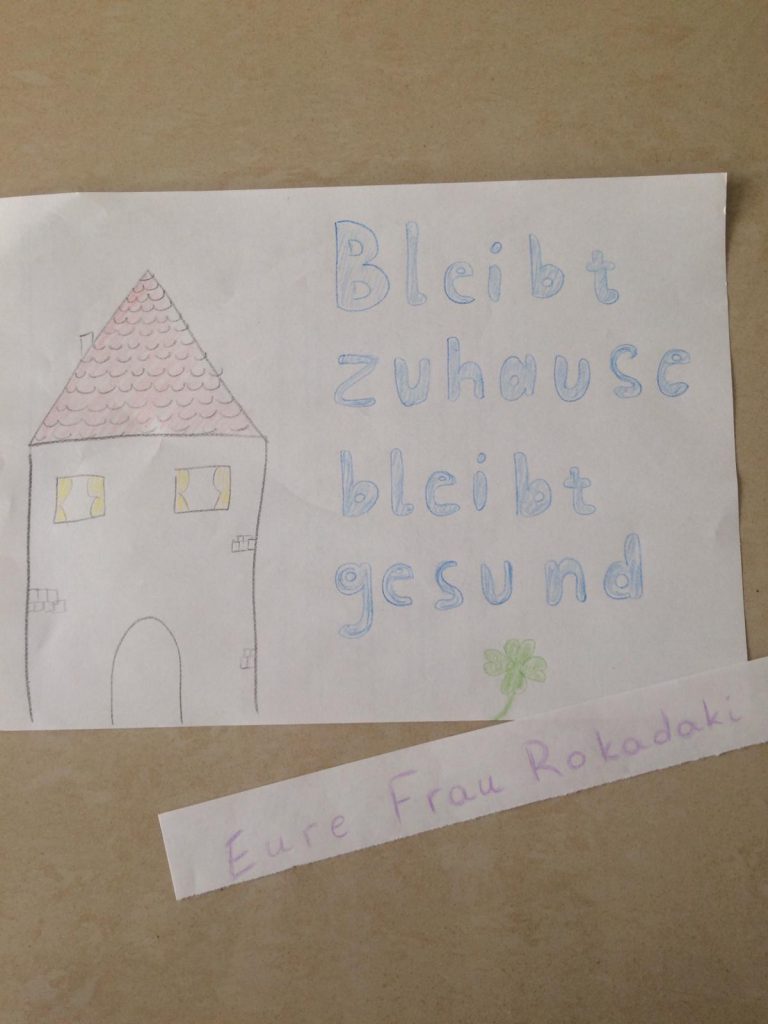 Bleibt
zuhause
bleibt
gesund
Eure Frau Rokadaki